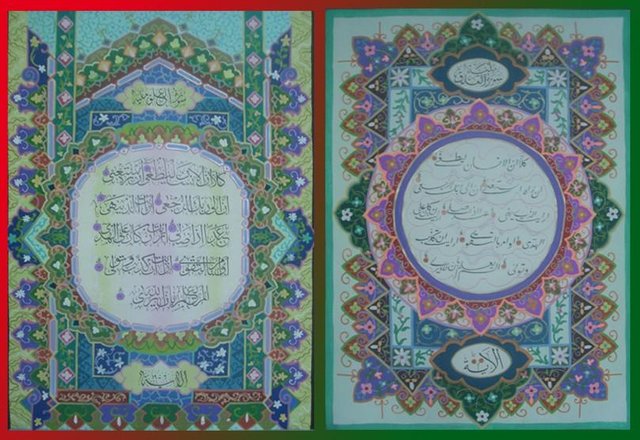 سورة العلق
كلا إن الإنسان ليطغى
أن رءاه استغنى إن إلى ربك الرجعى
أرءيت الذي ينهى عبدا إذا صلى أرءيت إن كان على
الهدى أو أمر بالتقوى أرءيت إن كذب
وتولى ألم يعلم بأن الله يرى
الآية
سورة العلق مكية
كلا إن الإنسان ليطغى أن رءاه استغنى
إن إلى ربك الرجعى أرءيت الذي ينهى
عبدا إذا صلى أرءيت إن كان على الهدى
أو أمر بالتقوى أرءيت إن كذب وتولى
ألم يعلم بأن الله يرى
الآية